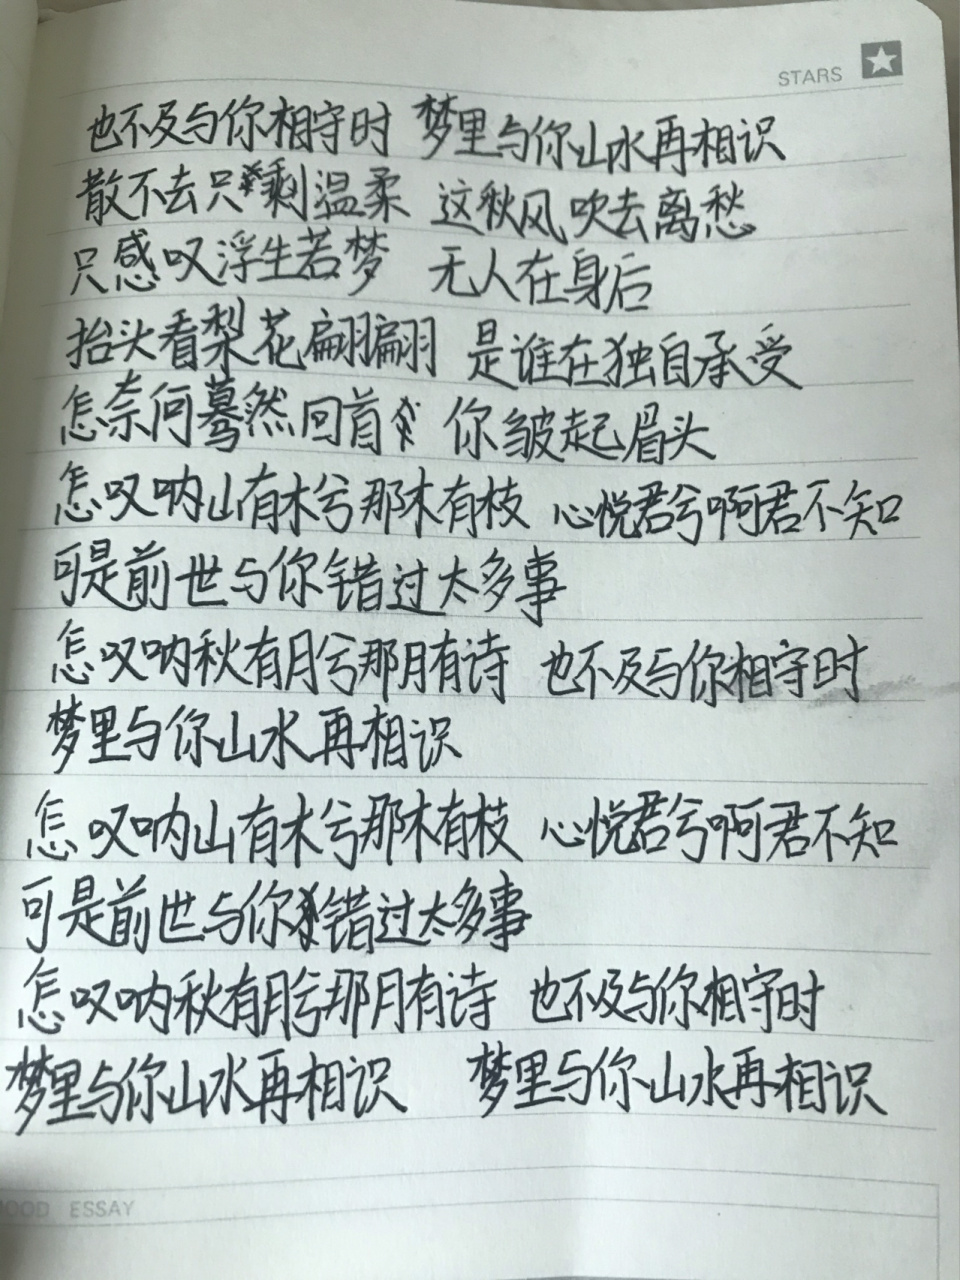 STARS
也不及与你相守时 梦里与你山水再相识
散不去只剩温柔 这秋风吹去离愁
只感叹浮生若梦 无人在身后
抬头看梨花翩翩 是谁在独自承受
怎奈何蓦然回首 你皱起眉头
怎叹呐山有木兮那木有枝 心悦君兮啊君不知
可是前世与你错过太多事
怎叹呐秋有月兮那月有诗 也不及与你相守时
梦里与你山水再相识
怎叹呐山有木兮那木有枝 心悦君兮啊君不知
可是前世与你错过太多事
怎叹呐秋有月兮那月有诗 也不及与你相守时
梦里与你山水再相识 梦里与你山水再相识
OOD ESSAY